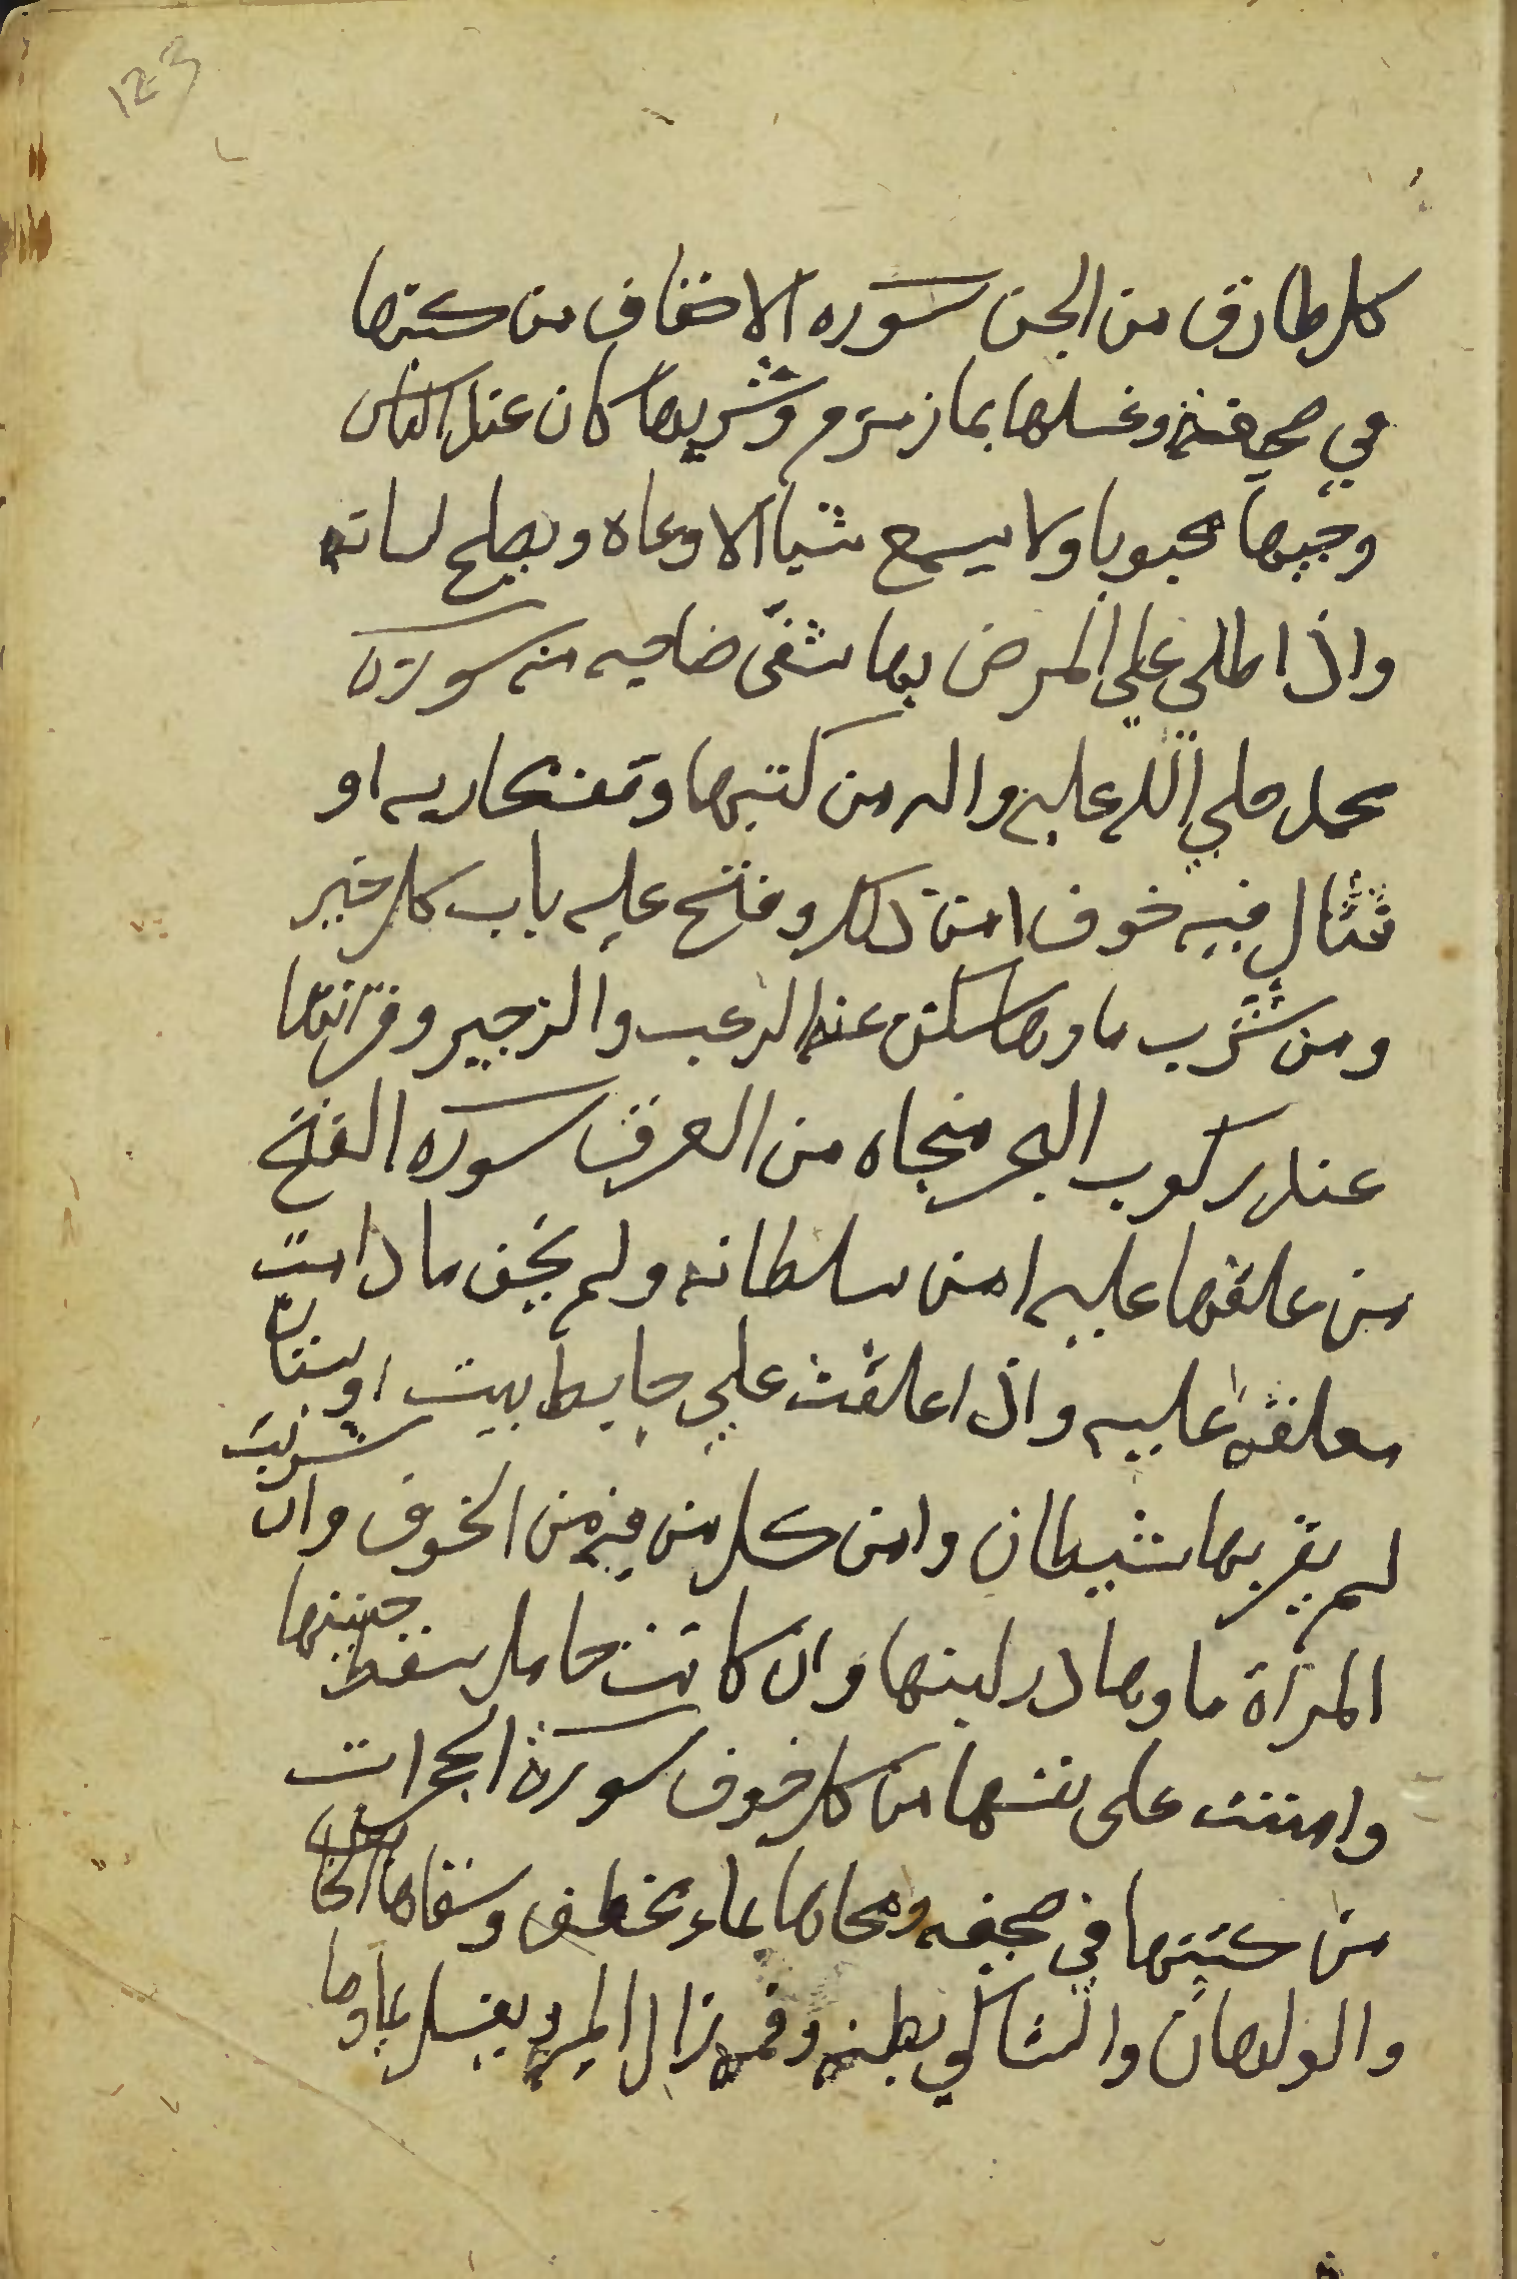 123
كل طارق من الجن سوره الاحقاف من كتبها
في صحيفة وغسلها بماز مزم وشربها كان عند الناس
وجيها محبوبا ولا يسمع شيا الا وعاه ويصلح لسانه
واذا طلي علي المرض بها شفى صاحبه منه سورة
محمد صلي الله عليه واله من كتبها وعلقها في محاربه او
قتال فيه خوف امن ذلك وفتح عليه باب كل خير
ومن شرب ماوها سكن عنه الرعب والزجير وقرائتها
عند ركوب البحر منجاه من الغرق سورة الفتح
من علقها عليه امن سلطانه ولم يخف ما دامت
معلقه عليه واذا علقت علي حايط بيت او بستان
لم يقربها شيطان وامن كل من فيه من الخوف وان شربت
المرأة ماوها در لبنها وان كانت حامل سقط جنينها
وامنت على نفسها من كل خوف سورة الحجرات
من كتبها في صحيفه ومحاها بماء وسقاها
والولهان والشاكي بطنه وفمه زال يغسل بماوها